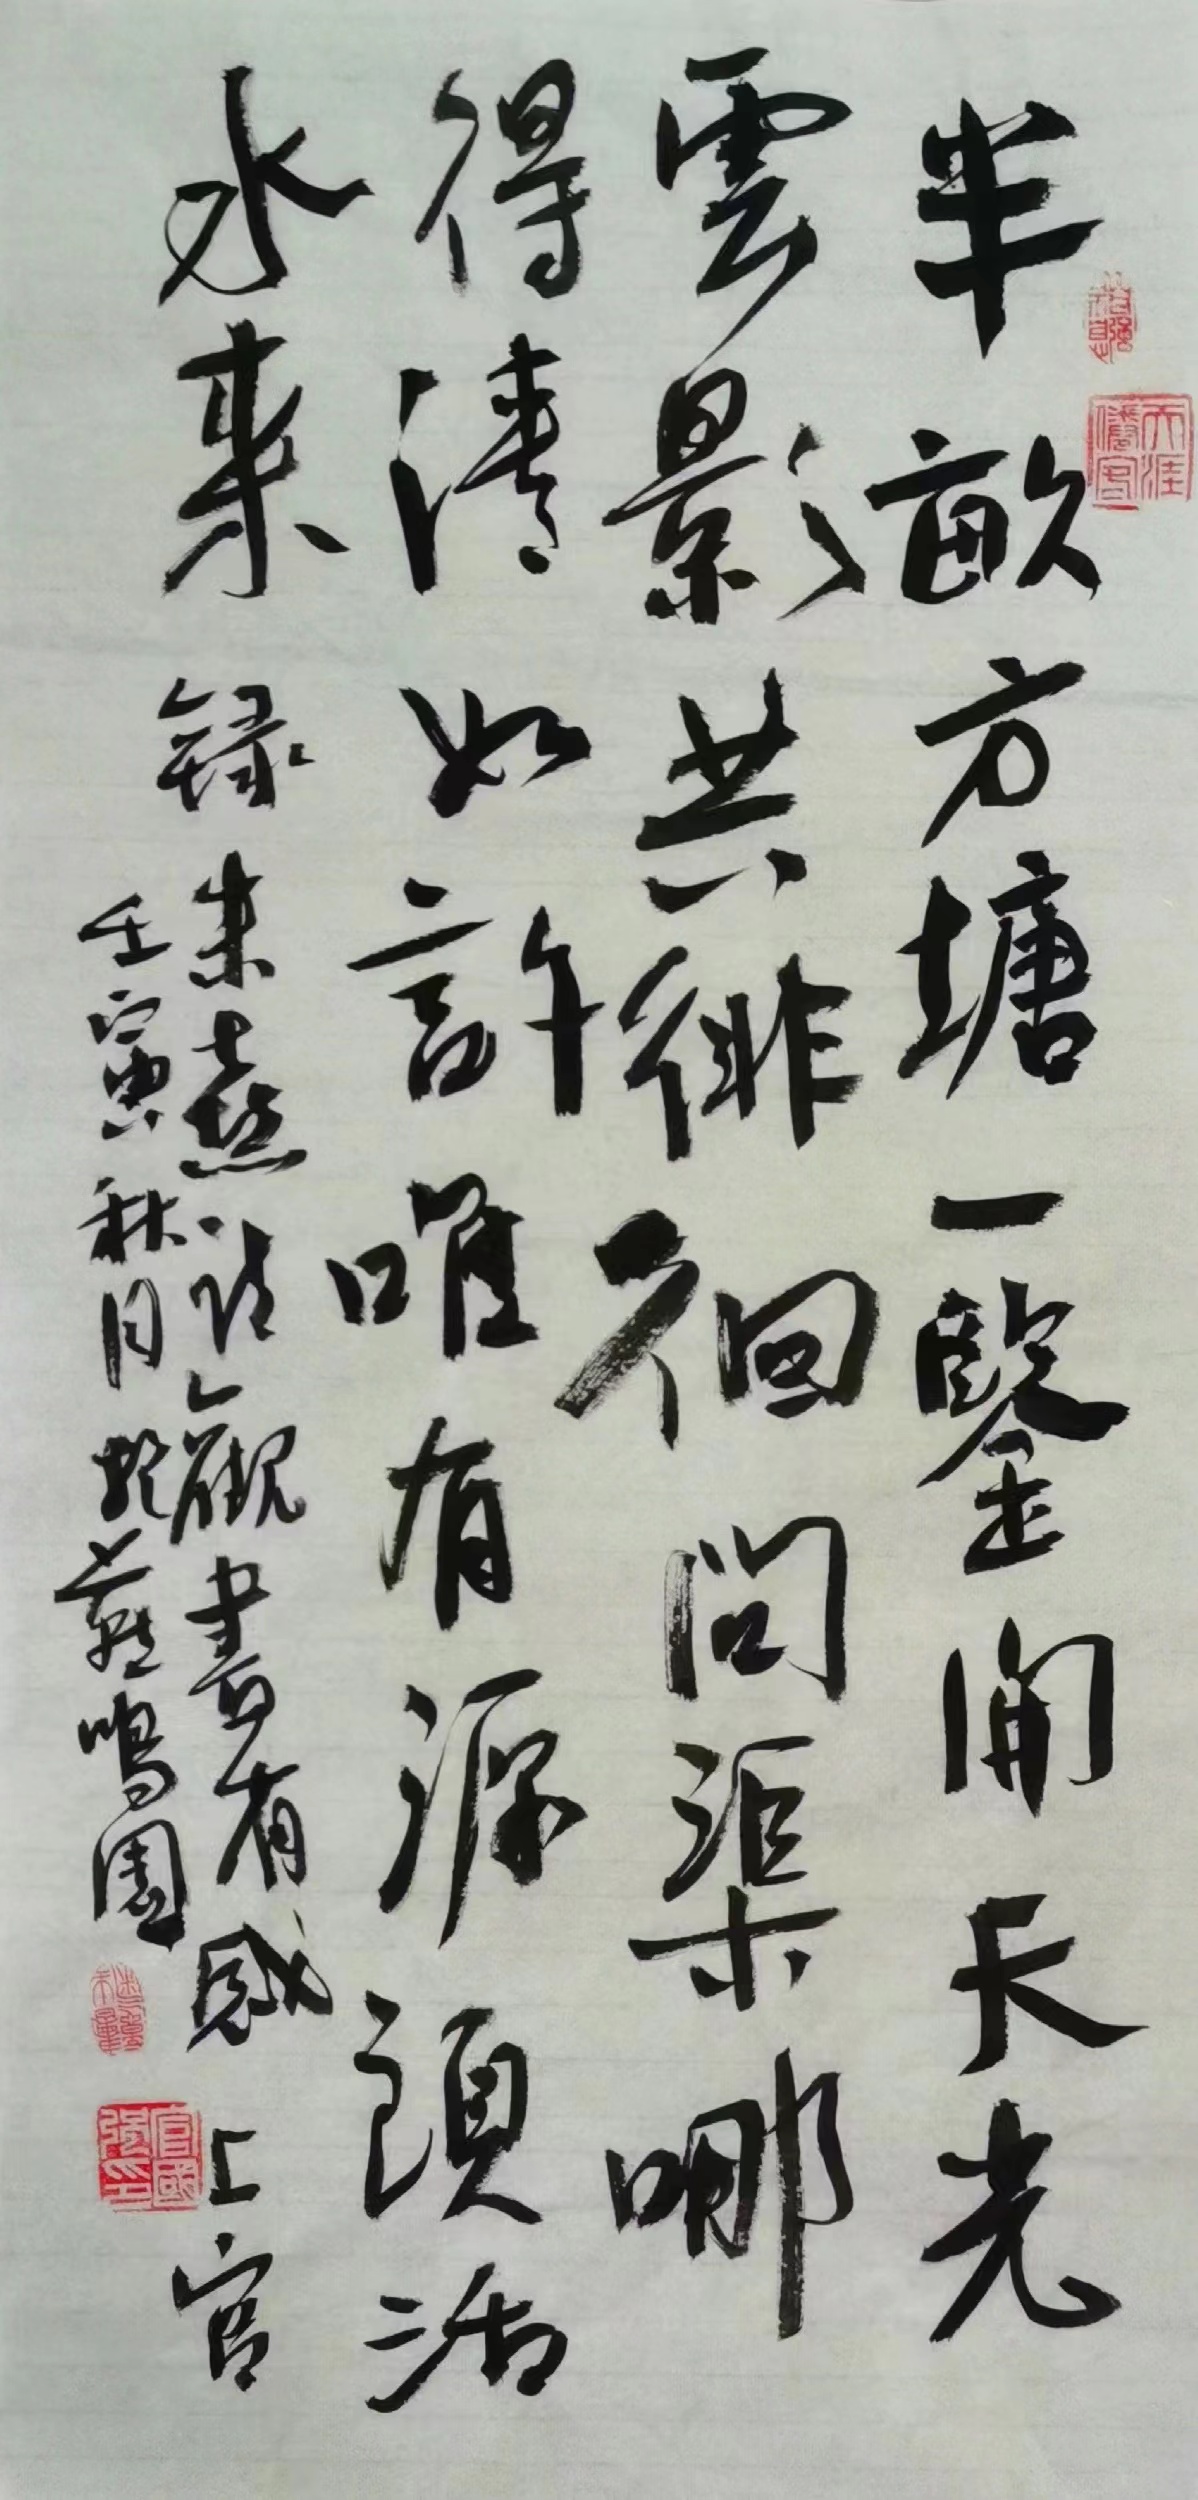 半畝方塘一鑒開天光
雲影共徘徊問渠哪
得清如許唯有源頭活
水来 録朱熹詩觀書有感 上官
壬寅秋月於鳴園
官國强印